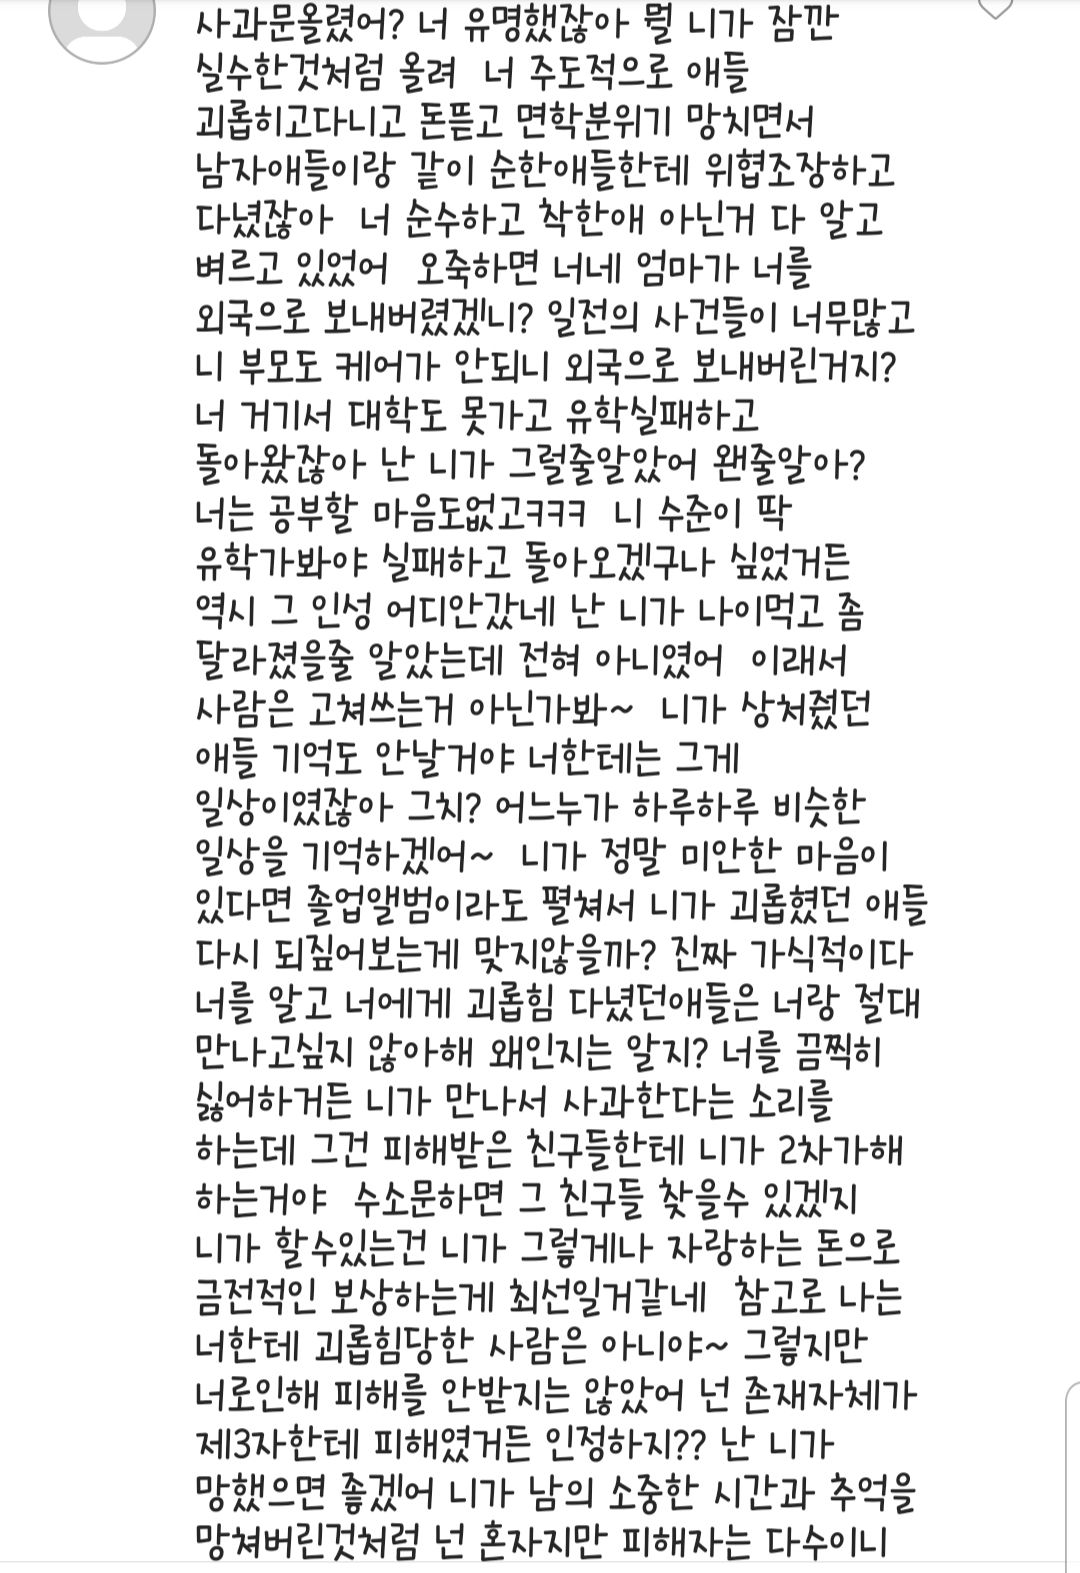 사과문올렸어? 너 유명했잖아 뭘 니가 잠깐
실수한것처럼 올려 너 주도적으로 애들
괴롭히고다니고 돈뜯고 면학분위기 망치면서
남자애들이랑 같이 순한애들한테 위협조장하고
다녔잖아 너 순수하고 착한애 아닌거 다 알고
벼르고 있었어 오죽하면 너네 엄마가 너를
외국으로 보내버렸겠니? 일전의 사건들이 너무많고
니 부모도 케어가 안되니 외국으로 보내버린거지?
너 거기서 대학도 못가고 유학실패하고
돌아왔잖아 난 니가 그럴줄알았어 왠줄알아?
너는 공부할 마음도없고ㅋㅋㅋ 니 수준이 딱
유학가봐야 실패하고 돌아오겠구나 싶었거든
역시 그 인성 어디안갔네 난 니가 나이먹고 좀
달라졌을줄 알았는데 전혀 아니였어 이래서
사람은 고쳐쓰는거 아닌가봐~ 니가 상처줬던
애들 기억도 안날거야 너한테는 그게
일상이였잖아 그치? 어느누가 하루하루 비슷한
일상을 기억하겠어~ 니가 정말 미안한 마음이
있다면 졸업앨범이라도 펼쳐서 니가 괴롭혔던 애들
다시 되짚어보는게 맞지않을까? 진짜 가식적이다
너를 알고 너에게 괴롭힘 다녔던애들은 너랑 절대
만나고싶지 않아해 왜인지는 알지? 너를 끔찍히
싫어하거든 니가 만나서 사과한다는 소리를
하는데 그건 피해받은 친구들한테 니가 2차가해
하는거야 수소문하면 그 친구들 찾을수 있겠지
니가 할수있는건 니가 그렇게나 자랑하는 돈으로
금전적인 보상하는게 최선일거같네 참고로 나는
너한테 괴롭힘당한 사람은 아니야~ 그렇지만
너로인해 피해를 안받지는 않았어 넌 존재자체가
제3자한테 피해였거든 인정하지?? 난 니가
망했으면 좋겠어 니가 남의 소중한 시간과 추억을
망쳐버린것처럼 넌 혼자지만 피해자는 다수이니